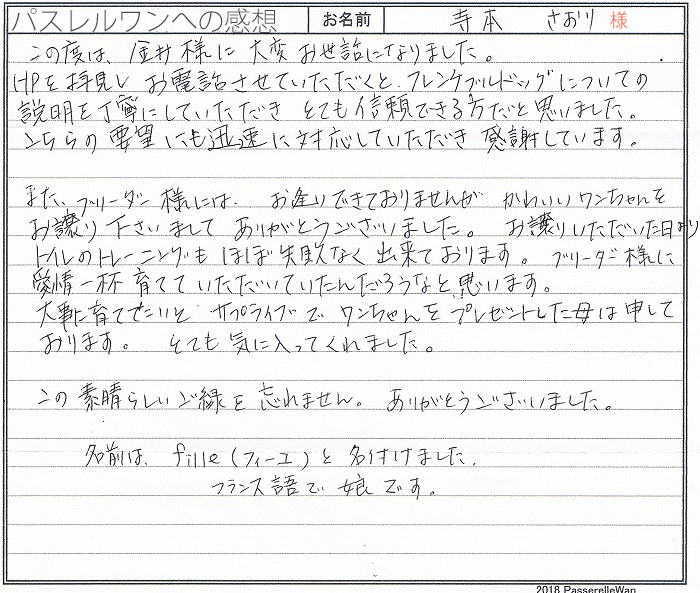 パスレルワンへの感想 お名前 寺本 さおり 様
この度は、金井様に大変お世話になりました。
HPを拝見しお電話させていただくと、フレンチブルドッグについての
説明を丁寧にしていただき とても信頼できる方だと思いました。
こちらの要望にも迅速に対応していただき 感謝しています。
また、ブリーダー様には、お逢いできておりませんが かわいいワンちゃんを
お譲り下さいまして ありがとうございました。お譲りいただいた日より
トイレのトレーニングもほぼ失敗なく出来ております。ブリーダー様に
愛情一杯育てていただいていたんだろうなと思います。
大事に育てたいと サプライズでワンちゃんをプレゼントした母は申して
おります。とても気に入ってくれました。
この素晴らしいご縁を忘れません。ありがとうございました。
名前は、fille(フィーユ)と名付けました。
フランス語で娘です。
2018 PasserelleWan